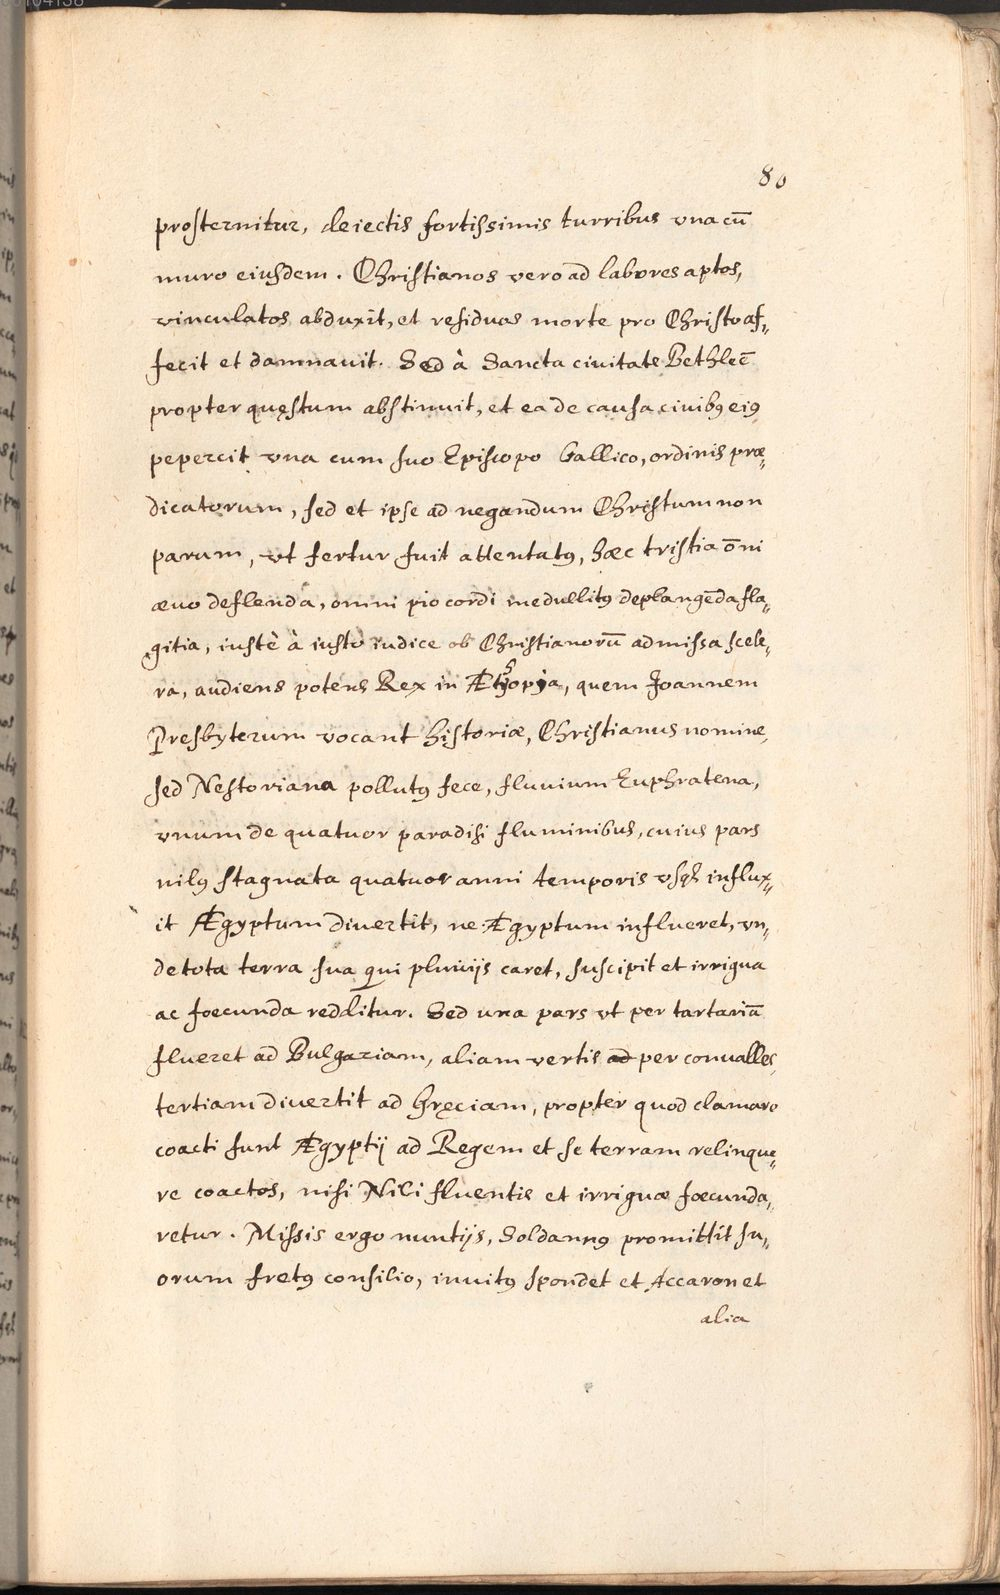 80
prosternitur, deiectis fortissimis turribus vna cū
muro eiusdem. Christianos vero ad labores aptos,
vinculatos abduxit, et residuos morte pro Christo af„
fecit et damnauit. Sed à Sancta ciuitate Bethleē
propter quęstum abstinuit, et ea de causa ciuibꝰ eiꝰ
pepercit vna cum suo Episcopo Gallico, ordinis præ„
dicatorum, sed et ipse ad negandum Christum non
parum, vt fertur fuit attentatꝰ, hæc tristia ōni
æuo deflenda, omni pio cordi medullitꝰ deplangēda fla„
gitia, iustè à iusto iudice ob Christianorū admissa scele„
ra, audiens potens Rex in Æthyopia, quem Joannem
Presbyterum vocant historiæ, Christianus nomine,
sed Nestoriana pollutꝰ fece, fluuium Euphratena,
vnum de quatuor paradisi fluminibus, cuius pars
nilꝰ stagnata quatuor anni temporis vsqꝫ influx„
it Ægyptum diuertit, ne Ægyptum influeret, vn„
de tota terra sua qui pluuijs caret, suscipit et irrigua
ac foecunda redditur. Sed una pars vt per tartariā
flueret ad Bulgariam, aliam vertis ad per conualles,
tertiam diuertit ad Gręciam, propter quod clamare
coacti sunt Ægyptij ad Regem et se terram relinque„
re coactos, nisi Nili fluentis et irriguæ foecunda„
retur. Missis ergo nuntijs, Soldannꝰ promittit su„
orum fretꝰ consilio, inuitꝰ spondet et Accaron et
alia